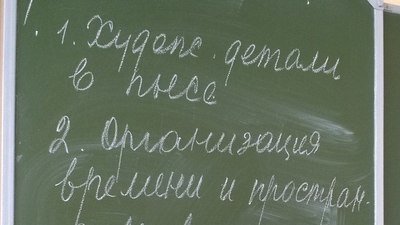 1. Худож. детали
в пьесе
2. Организация
времени и простран-